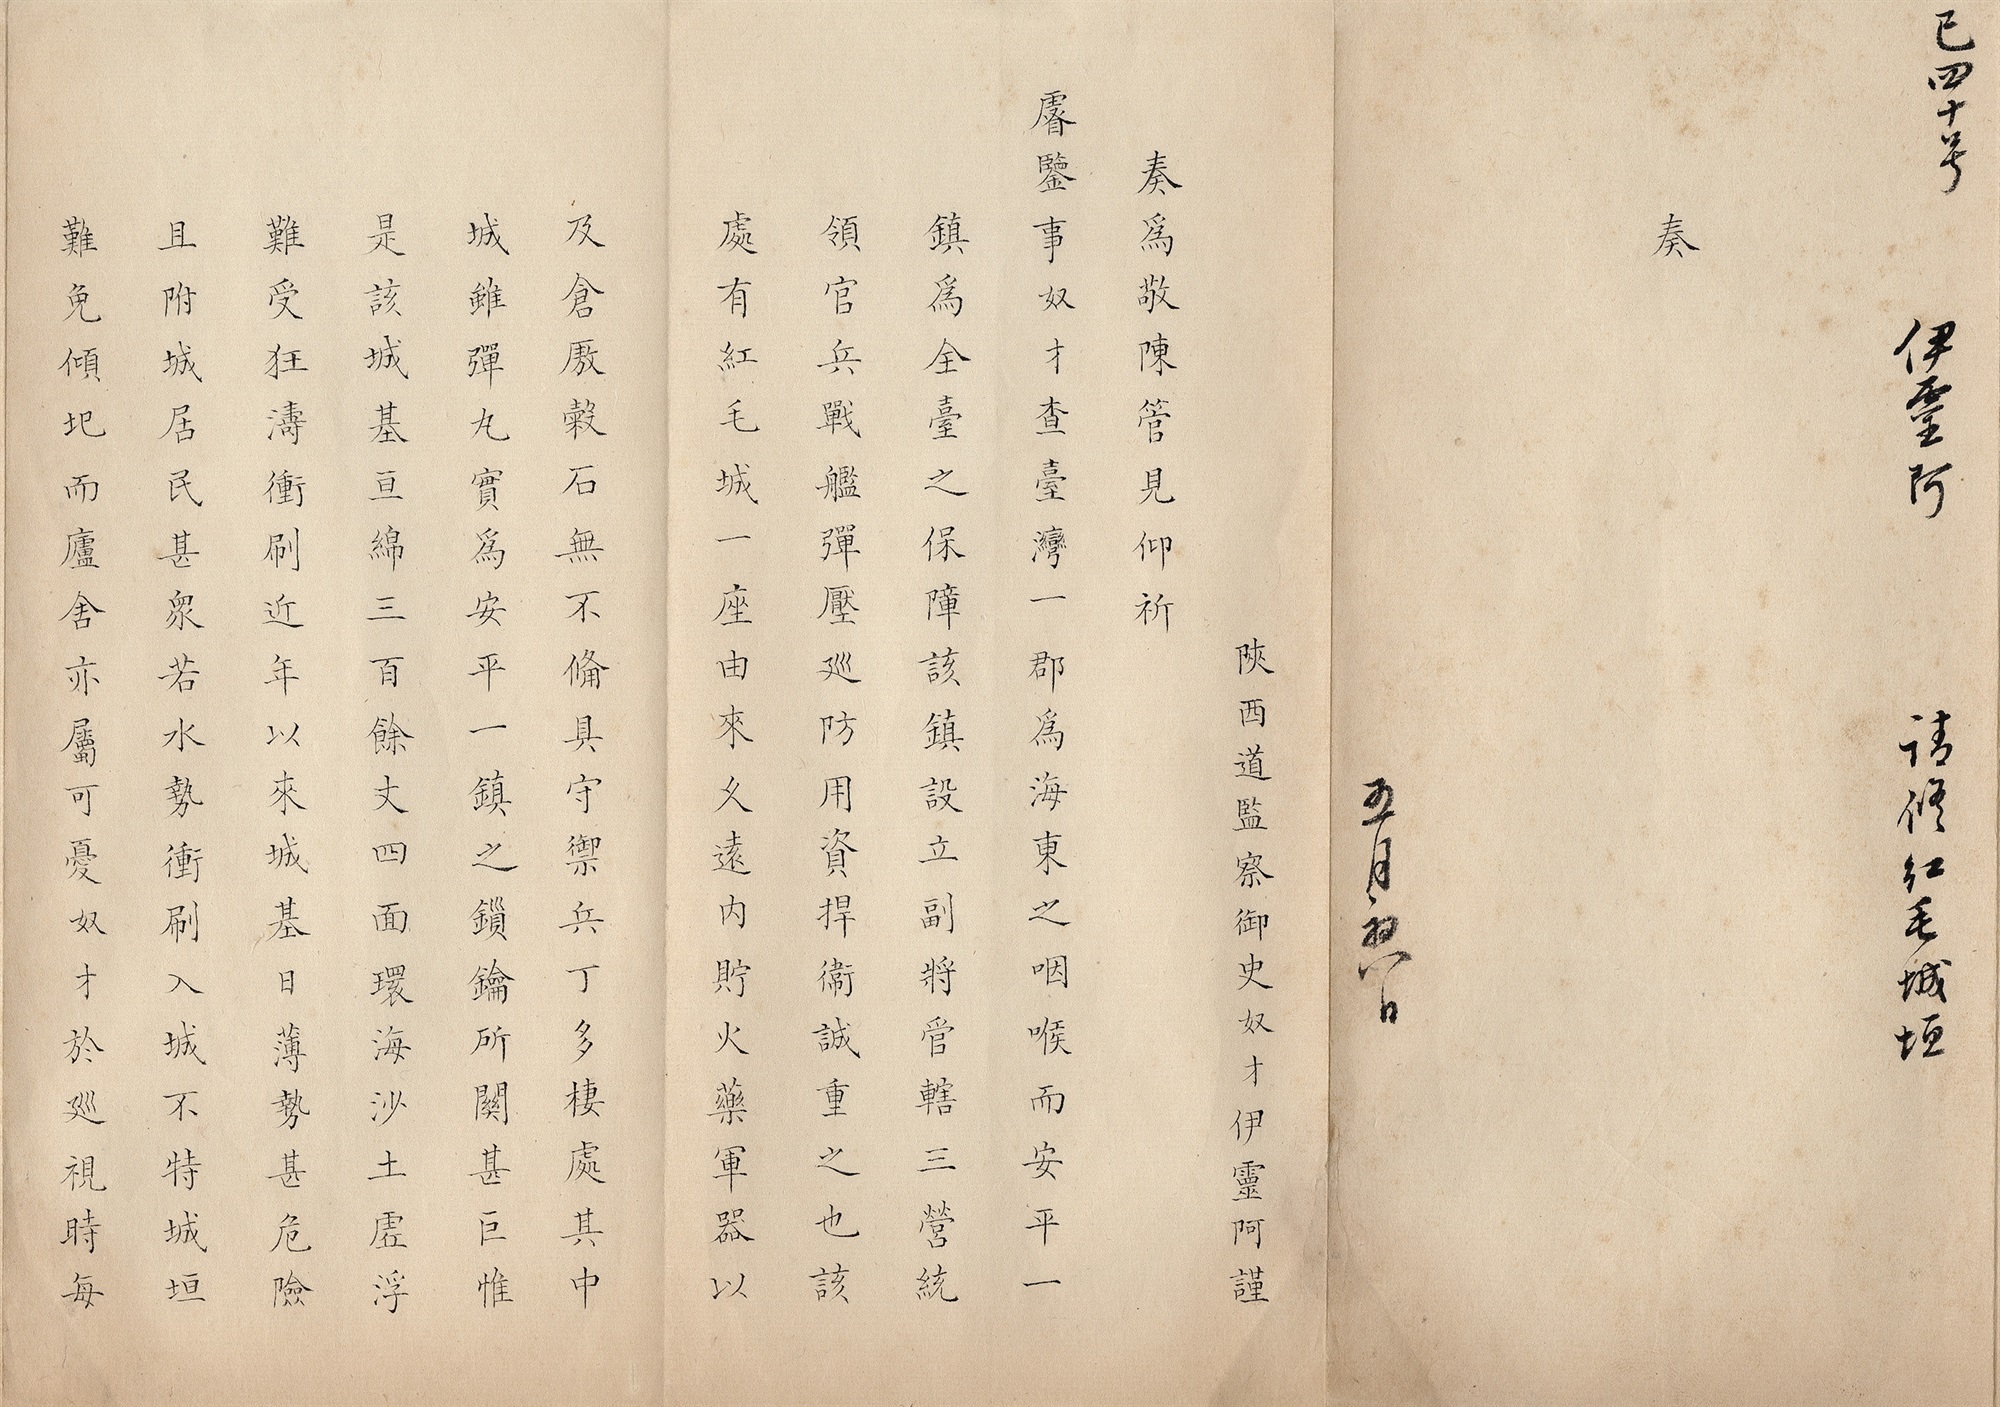 已四十号
伊靈阿
请修红毛城垣
奏
五月初八日
陝西道監察御史奴才伊靈阿謹
奏爲敬陳管見仰祈
睿鑒事奴才查臺灣一郡爲海東之咽喉而安平一
鎮爲全臺之保障該鎮設立副將管轄三營統
領官兵戰艦彈壓巡防用資捍衞誠重之也該
處有紅毛城一座由來久遠内貯火藥軍器以
及倉厫穀石無不俻具守禦兵丁多棲處其中
城雖彈丸實爲安平一鎮之鎖鑰所關甚巨惟
是該城基亘綿三百餘丈四面環海沙土虛浮
難受狂濤衝刷近年以來城基日薄勢甚危險
且附城居民甚衆若水勢衝刷入城不特城垣
難免傾圯而廬舍亦屬可憂奴才於巡視時每